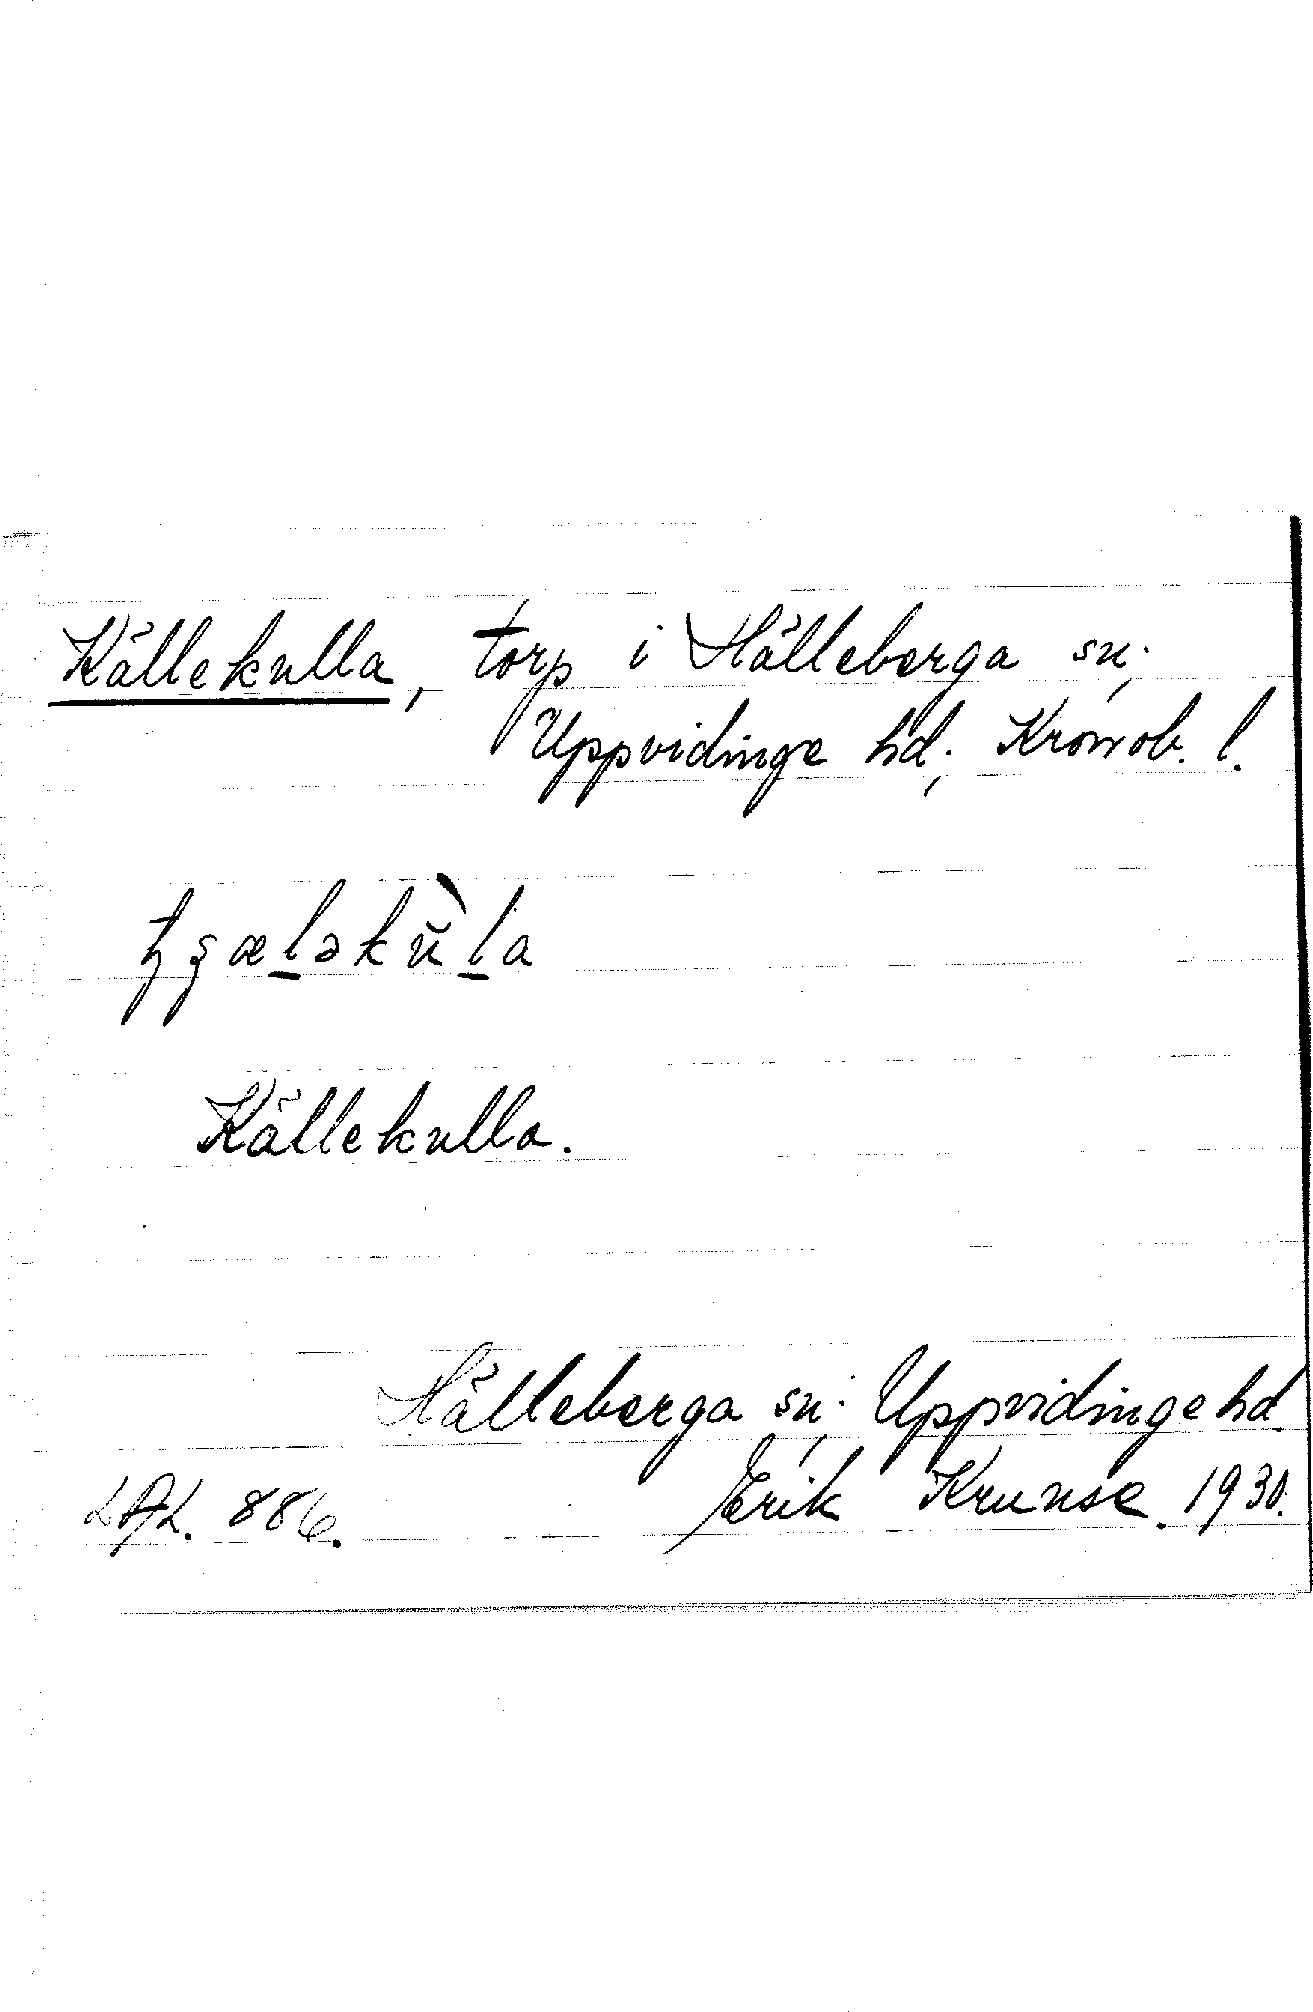 Källekulla, torp i Hälleberga sn;
Uppvidinge hd; Kronob. l.
Källekulla.
Hälleberga sn; Uppvidinge hd
LAL. 886. Erik Krunse. 1930.